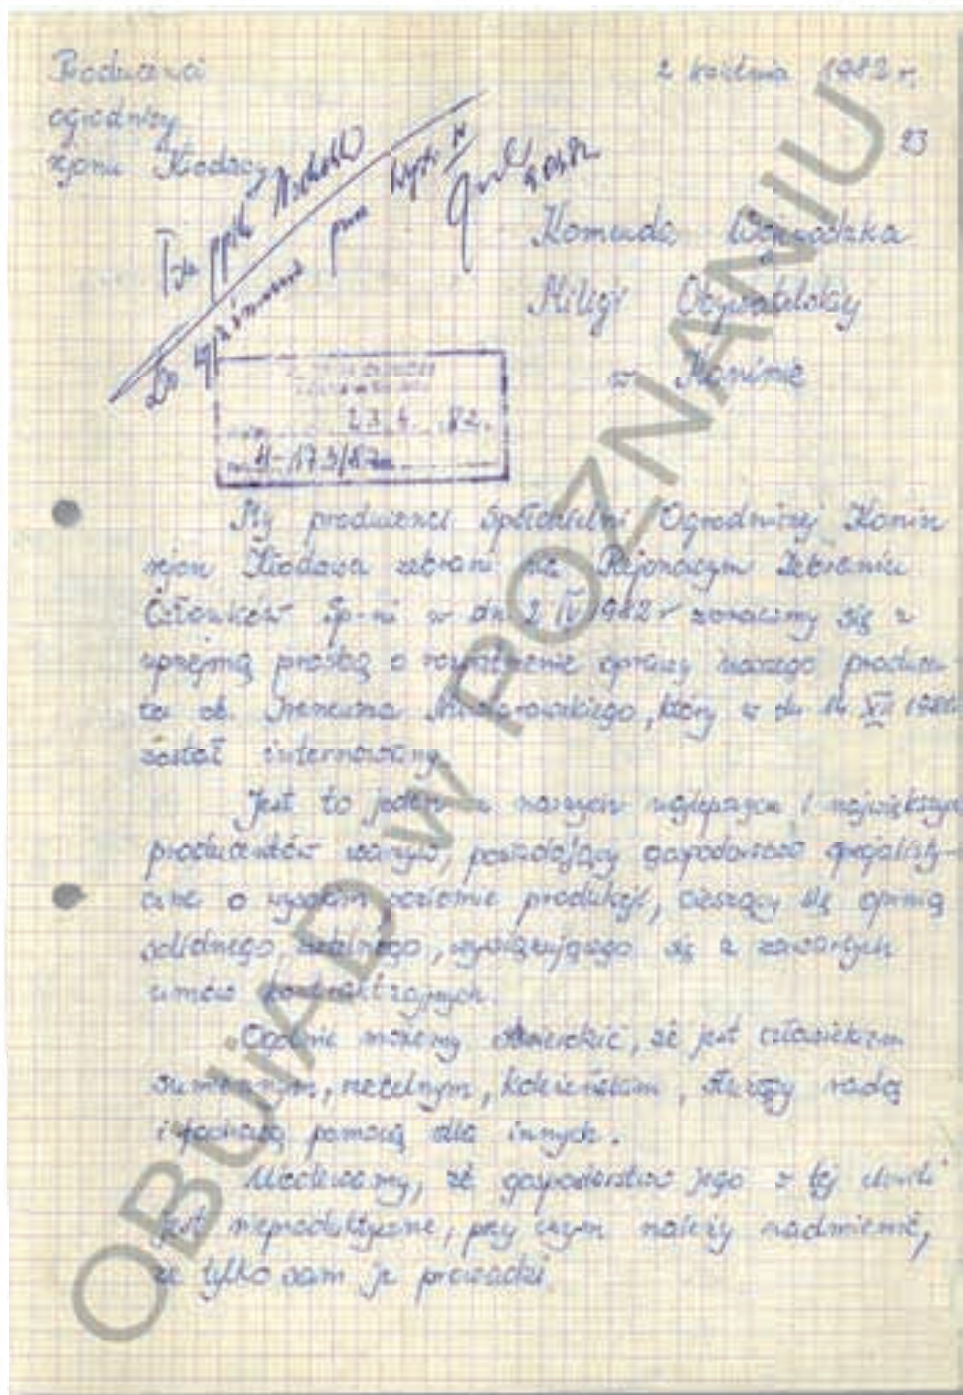 Producenci
ogrodniczy
rejonu Kłodawy
2 kwietnia 1982 r.
93
Komenda Wojewódzka
Milicji Obywatelskiej
w Koninie
23. 4. 82.
My producenci Spółdzielni Ogrodniczej Konin
rejon Kłodawa zebrani na Rejonowym Zebraniu
Członków Sp-ni w dn 2 IV 1982 r zwracamy się z
uprzejmą prośbą o rozpatrzenie sprawy naszego producen-
ta ob. Ireneusza, który w dn 14 XII 1981
został internowany.
Jest to jeden z naszych najlepszych i największych
producentów warzyw, posiadający gospodarstwo specjalisty-
czne o wysokim poziomie produkcji, cieszący się opinią
solidnego, rzetelnego, wywiązującego się z zawartych
umów kontraktacyjnych.
Ogólnie możemy stwierdzić, że jest człowiekiem
sumiennym, rzetelnym, koleżeńskim, służący radą
i fachową pomocą dla innych.
Nadmieniamy, że gospodarstwo jego w tej chwili
jest nieproduktywne, przy czym należy nadmienić,
że tylko sam je prowadzi.
OBUiAD w POZNANIU